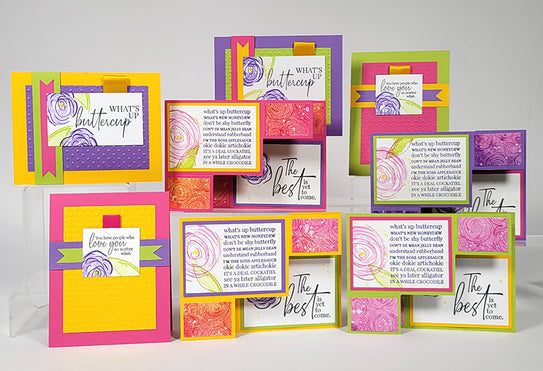 WHAT'S
UP
buttercup
WHAT'S
UP
buttercup
You have people who
love you
no matter
what.
what's up buttercup
WHAT'S NEW HONEYDEW
don't be shy butterfly
DON'T BE MEAN JELLY BEAN
understand rubberband
I'M THE BOSS APPLESAUCE
okie dokie artichokie
IT'S A DEAL COCKATIEL
see ya later alligator
IN A WHILE CROCODILE
The
best
is yet
to come.
what's up buttercup
WHAT'S NEW HONEYDEW
don't be shy butterfly
DON'T BE MEAN JELLY BEAN
understand rubberband
I'M THE BOSS APPLESAUCE
okie dokie artichokie
IT'S A DEAL COCKATIEL
see ya later alligator
IN A WHILE CROCODILE
The
best
is yet
to come.
You have people who
love you
no matter
what.
what's up buttercup
WHAT'S NEW HONEYDEW
don't be shy butterfly
DON'T BE MEAN JELLY BEAN
understand rubberband
I'M THE BOSS APPLESAUCE
okie dokie artichokie
IT'S A DEAL COCKATIEL
see ya later alligator
IN A WHILE CROCODILE
The
best
is yet
to come.
what's up buttercup
WHAT'S NEW HONEYDEW
don't be shy butterfly
DON'T BE MEAN JELLY BEAN
understand rubberband
I'M THE BOSS APPLESAUCE
okie dokie artichokie
IT'S A DEAL COCKATIEL
see ya later alligator
IN A WHILE CROCODILE
The
best
is yet
to come.